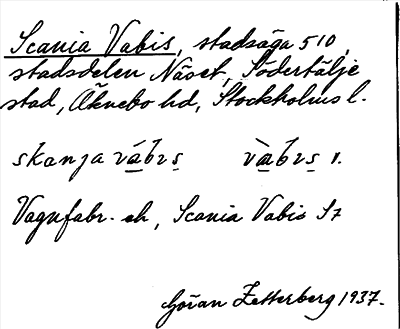 Scania Vabis, stadsäga 510,
stadsdelen Näset, Södertälje
stad, Öknebo hd, Stockholms l.
skanja vábıs vàbıs ı.
Vagnfabr. ch, Scania Vabis
Göran Zetterberg 1937.